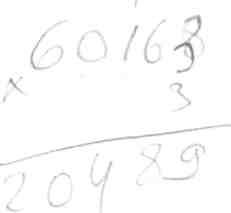 60163
× 3
20489